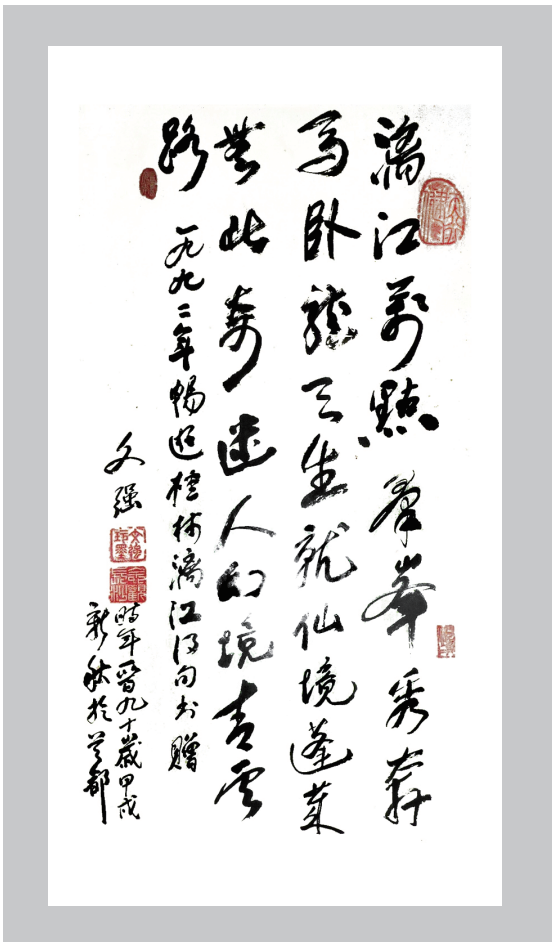 漓江萬點羣峯秀奔
馬卧龍天生就仙境蓬萊
無此奇迷人幻境青雲
路
一九九二年暢遊桂林漓江得句书贈
文强
時年晋九十歲甲戌
新秋於首都